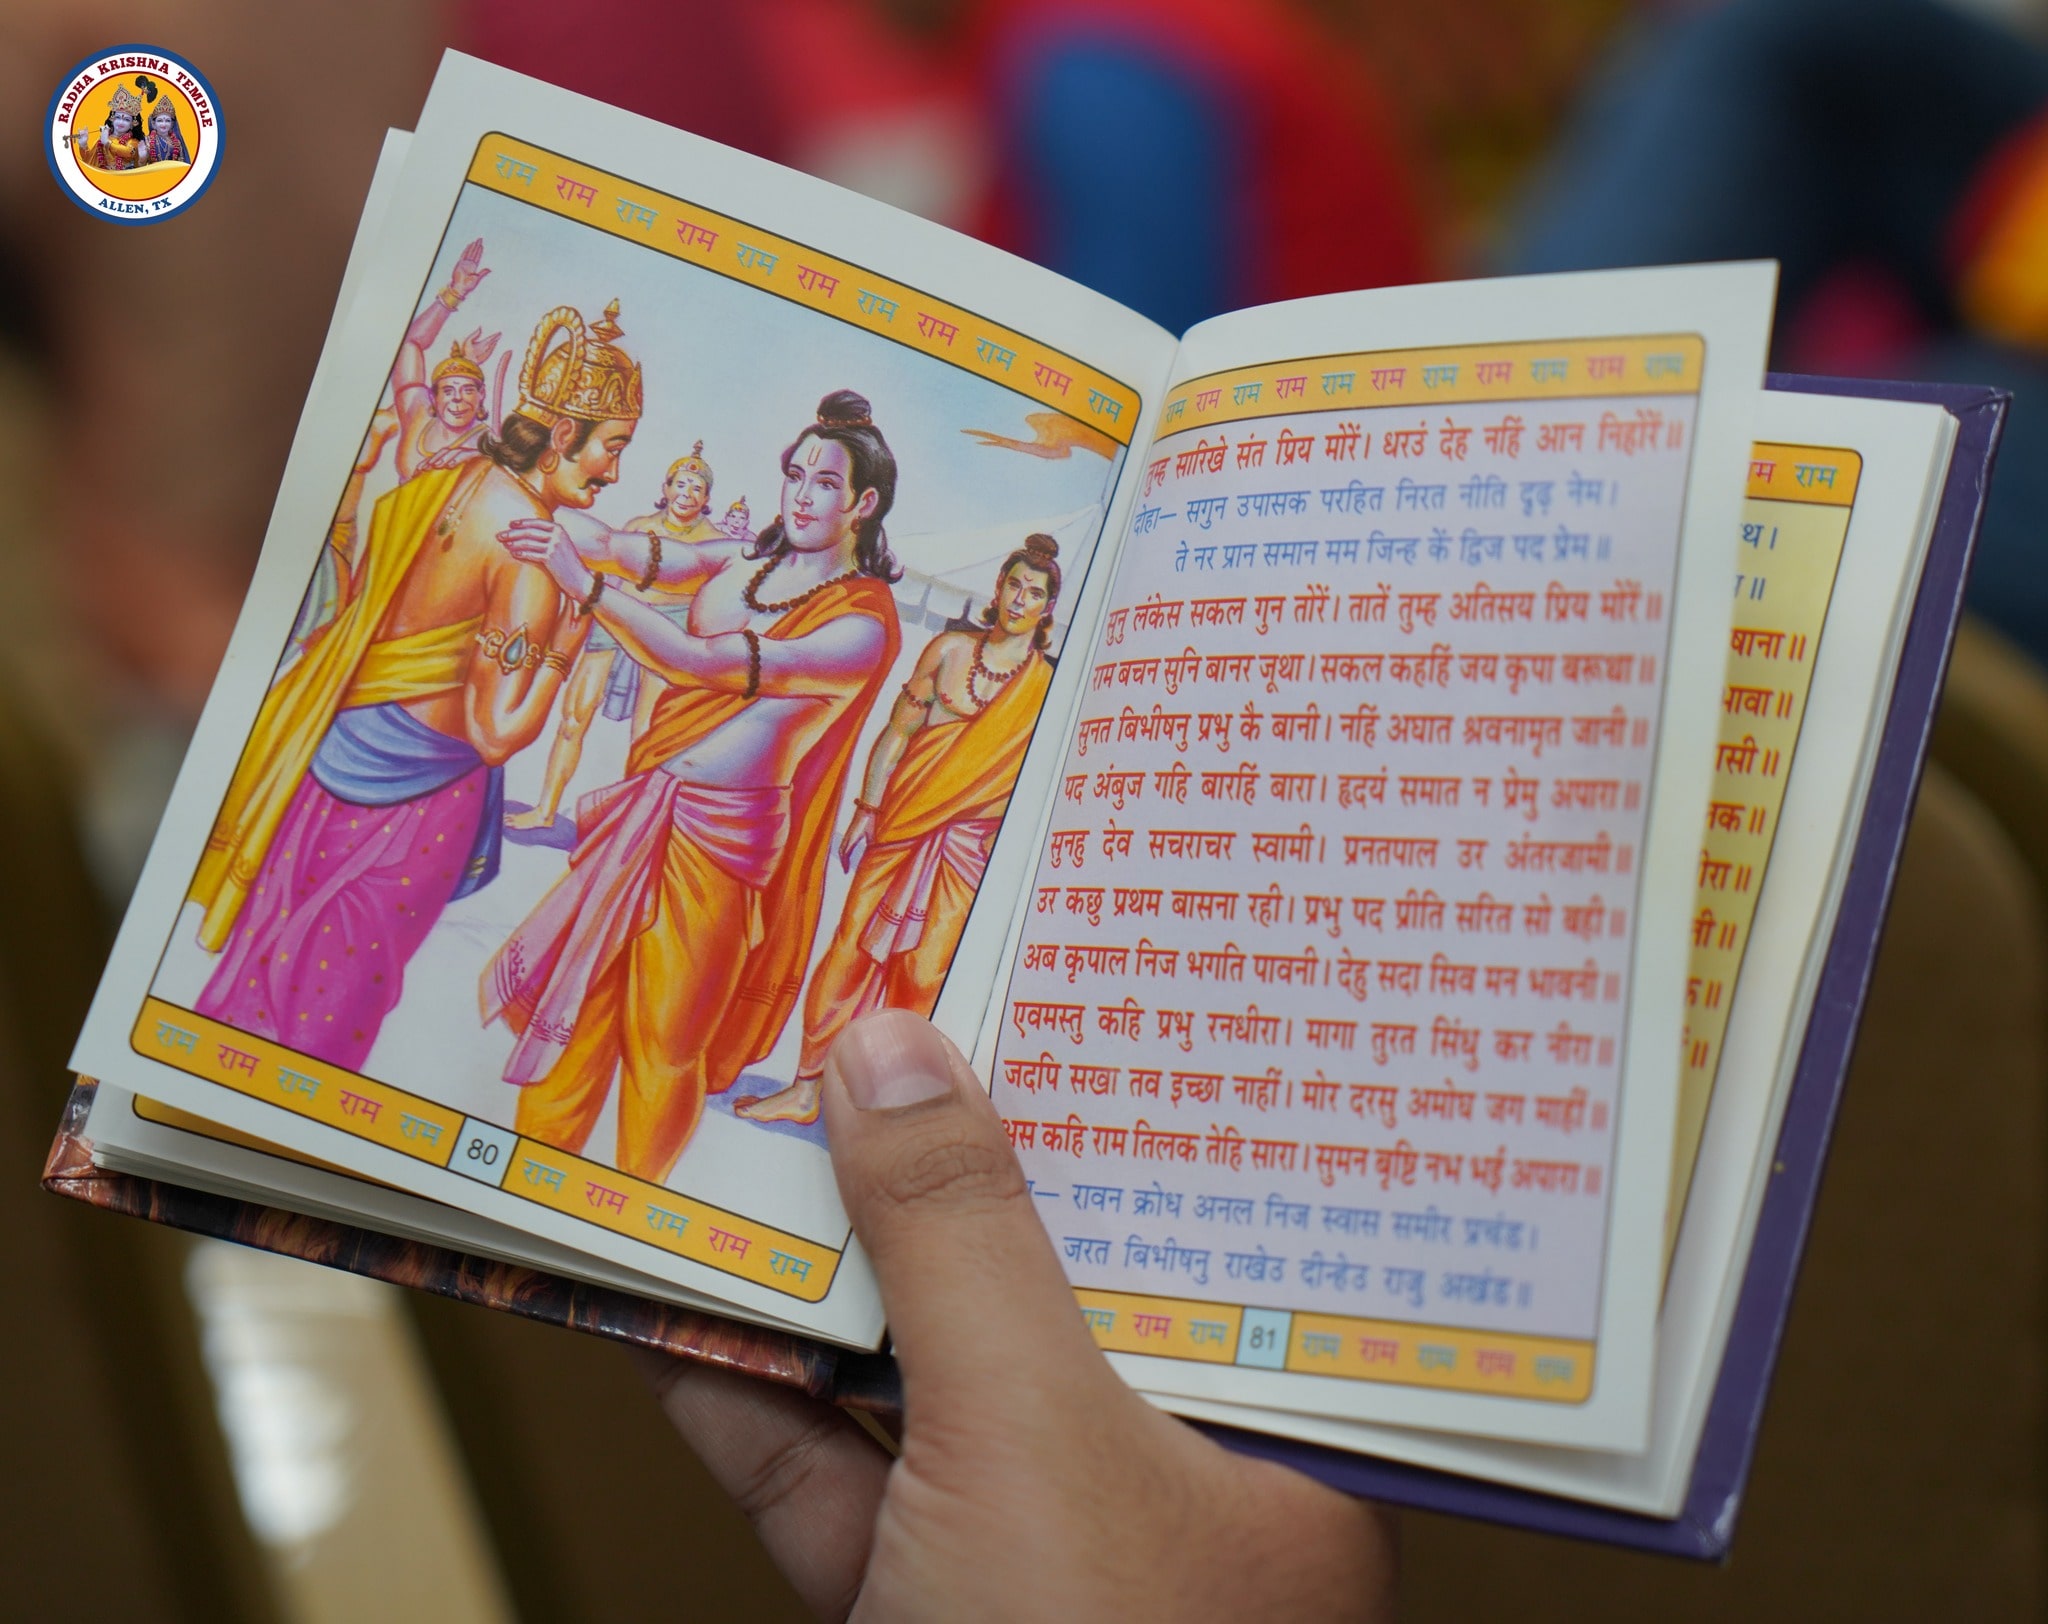 RADHA KRISHNA TEMPLE
ALLEN, TX
राम राम राम राम राम राम राम राम राम राम राम
राम राम राम राम राम 80 राम राम राम राम राम
राम राम राम राम राम राम राम राम राम राम राम
तुम्ह सारिखे संत प्रिय मोरें। धरउं देह नहिं आन निहोरें॥
दोहा— सगुन उपासक परहित निरत नीति दृढ़ नेम।
ते नर प्रान समान मम जिन्ह कें द्विज पद प्रेम॥
सुनु लंकेस सकल गुन तोरें। तातें तुम्ह अतिसय प्रिय मोरें॥
राम बचन सुनि बानर जूथा। सकल कहहिं जय कृपा बरूथा॥
सुनत बिभीषनु प्रभु कै बानी। नहिं अघात श्रवनामृत जानी॥
पद अंबुज गहि बारहिं बारा। हृदयं समात न प्रेमु अपारा॥
सुनहु देव सचराचर स्वामी। प्रनतपाल उर अंतरजामी॥
उर कछु प्रथम बासना रही। प्रभु पद प्रीति सरित सो बही॥
अब कृपाल निज भगति पावनी। देहु सदा सिव मन भावनी॥
एवमस्तु कहि प्रभु रनधीरा। मागा तुरत सिंधु कर नीरा॥
जदपि सखा तव इच्छा नाहीं। मोर दरसु अमोघ जग माहीं॥
अस कहि राम तिलक तेहि सारा। सुमन बृष्टि नभ भई अपारा॥
— रावन क्रोध अनल निज स्वास समीर प्रचंड।
जरत बिभीषनु राखेउ दीन्हेउ राजु अखंड॥
राम राम राम 81 राम राम राम राम राम
राम